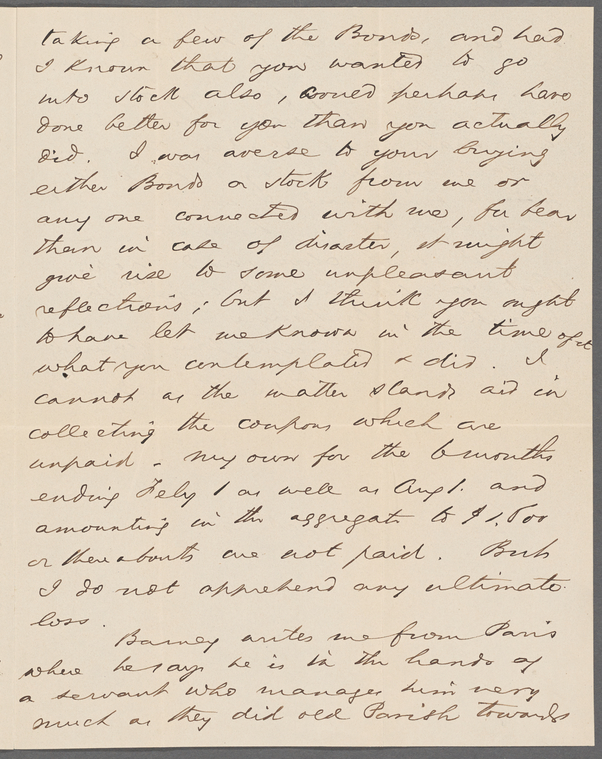 taking a few of the Bonds, and had
I known that you wanted to go
into stock also, would perhaps have
done better for you than you actually
did. I was averse to your buying
either Bonds or stock from me or
any one connected with me, for fear
than in case of disaster, it might
give rise to some unpleasant
reflections; but I think you ought
to have let me known in the time of it
what you contemplated & did. I
cannot as the matter stands aid in
collecting the coupons which are
unpaid - My own for the 6 months
ending Feby 1 as well as Aug 1. and
amounting in the aggregate to
or thereabouts are not paid. But
I do not apprehend any ultimate
loss.
Barney writes me from Paris
where he says he is in the hands of
a servant who manages him very
much as they did old Parish towards